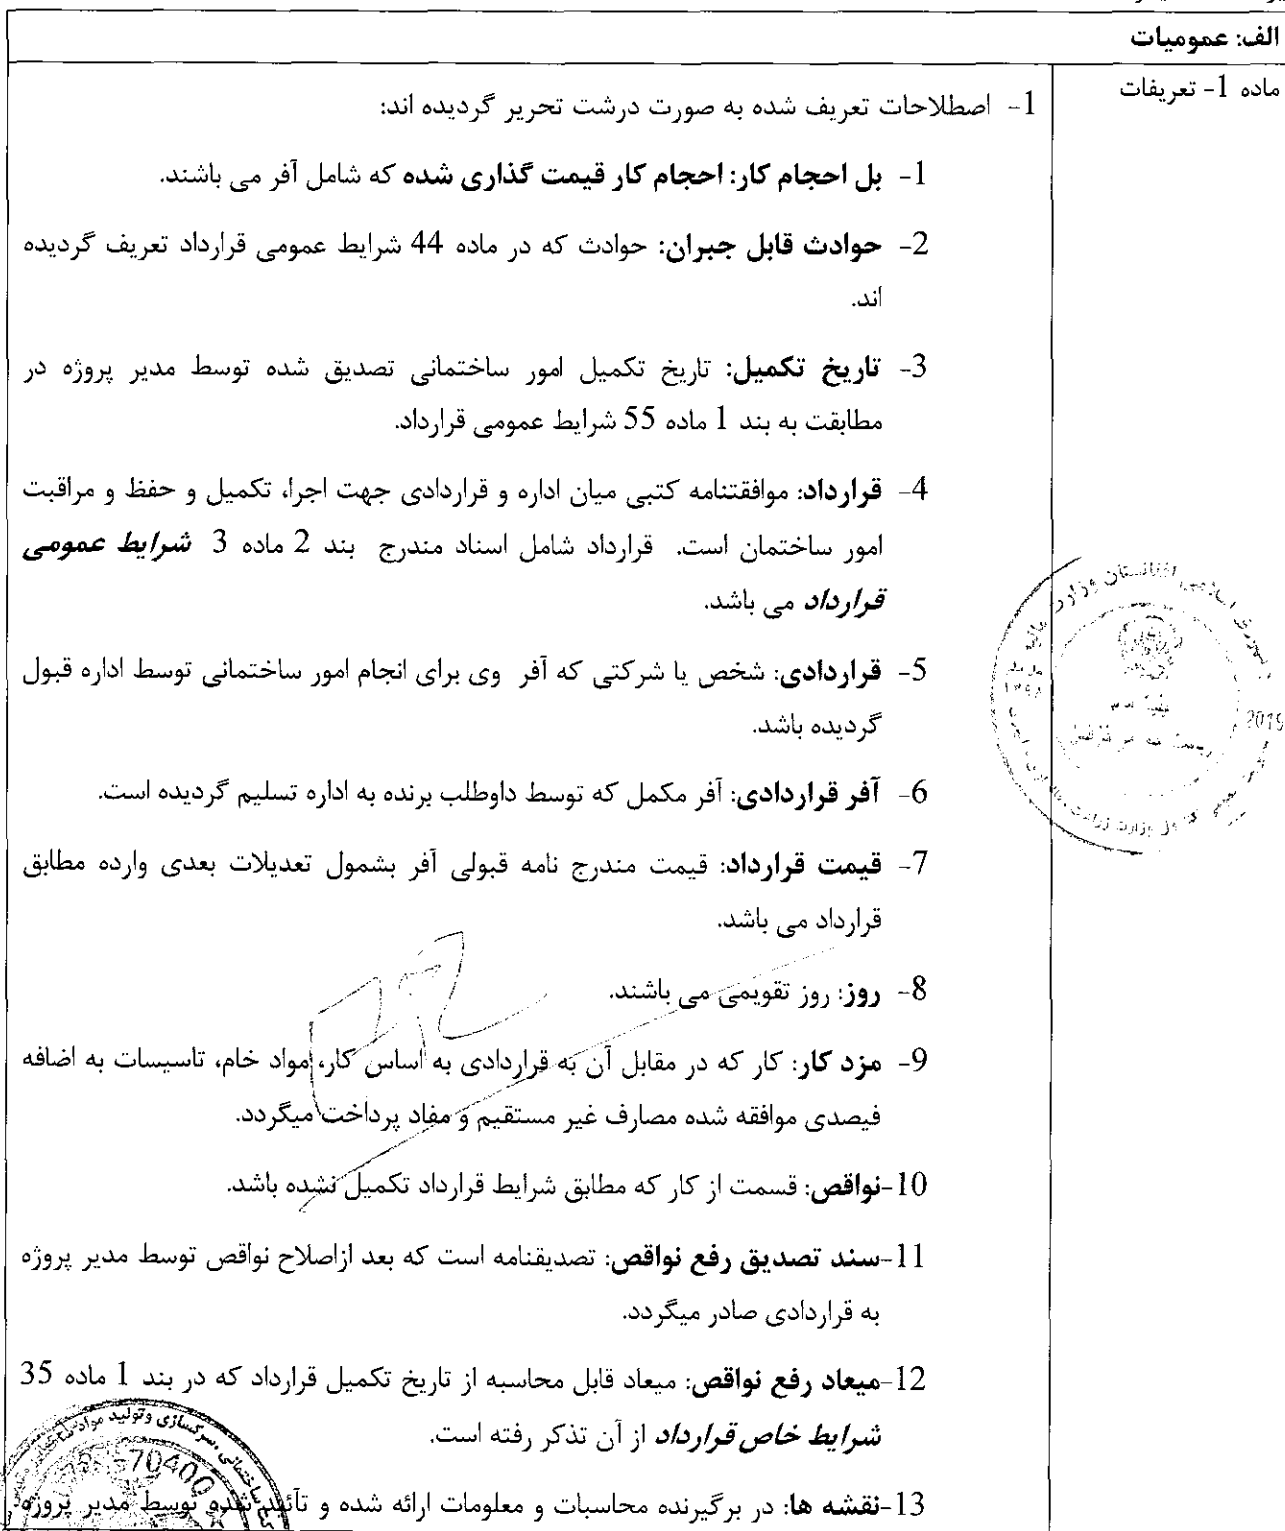 الف: عمومیات
ماده 1- تعریفات
1- اصطلاحات تعریف شده به صورت درشت تحریر گردیده اند:
1- بل احجام کار: احجام کار قیمت گذاری شده که شامل آفر می باشند.
2- حوادث قابل جبران: حوادث که در ماده 44 شرایط عمومی قرارداد تعریف گردیده
اند.
3- تاریخ تکمیل: تاریخ تکمیل امور ساختمانی تصدیق شده توسط مدیر پروژه در
مطابقت به بند 1 ماده 55 شرایط عمومی قرارداد.
4- قرارداد: موافقتنامه کتبی میان اداره و قراردادی جهت اجرا، تکمیل و حفظ و مراقبت
امور ساختمان است. قرارداد شامل اسناد مندرج بند 2 ماده 3 شرایط عمومی
قرارداد می باشد.
5- قراردادی: شخص یا شرکتی که آفر وی برای انجام امور ساختمانی توسط اداره قبول
گردیده باشد.
6- آفر قراردادی: آفر مکمل که توسط داوطلب برنده به اداره تسلیم گردیده است.
7- قیمت قرارداد: قیمت مندرج نامه قبولی آفر بشمول تعدیلات بعدی وارده مطابق
قرارداد می باشد.
8- روز: روز تقویمی می باشند.
9- مزد کار: کار که در مقابل آن به قراردادی به اساس کار، مواد خام، تاسیسات به اضافه
فیصدی موافقه شده مصارف غیر مستقیم و مفاد پرداخت میگردد.
10-نواقص: قسمت از کار که مطابق شرایط قرارداد تکمیل نشده باشد.
11-سند تصدیق رفع نواقص: تصدیقنامه است که بعد ازاصلاح نواقص توسط مدیر پروژه
به قراردادی صادر میگردد.
12-میعاد رفع نواقص: میعاد قابل محاسبه از تاریخ تکمیل قرارداد که در بند 1 ماده 35
شرایط خاص قرارداد از آن تذکر رفته است.
13-نقشه ها: در برگیرنده محاسبات و معلومات ارائه شده و تائید شده توسط مدیر پروژه
2019